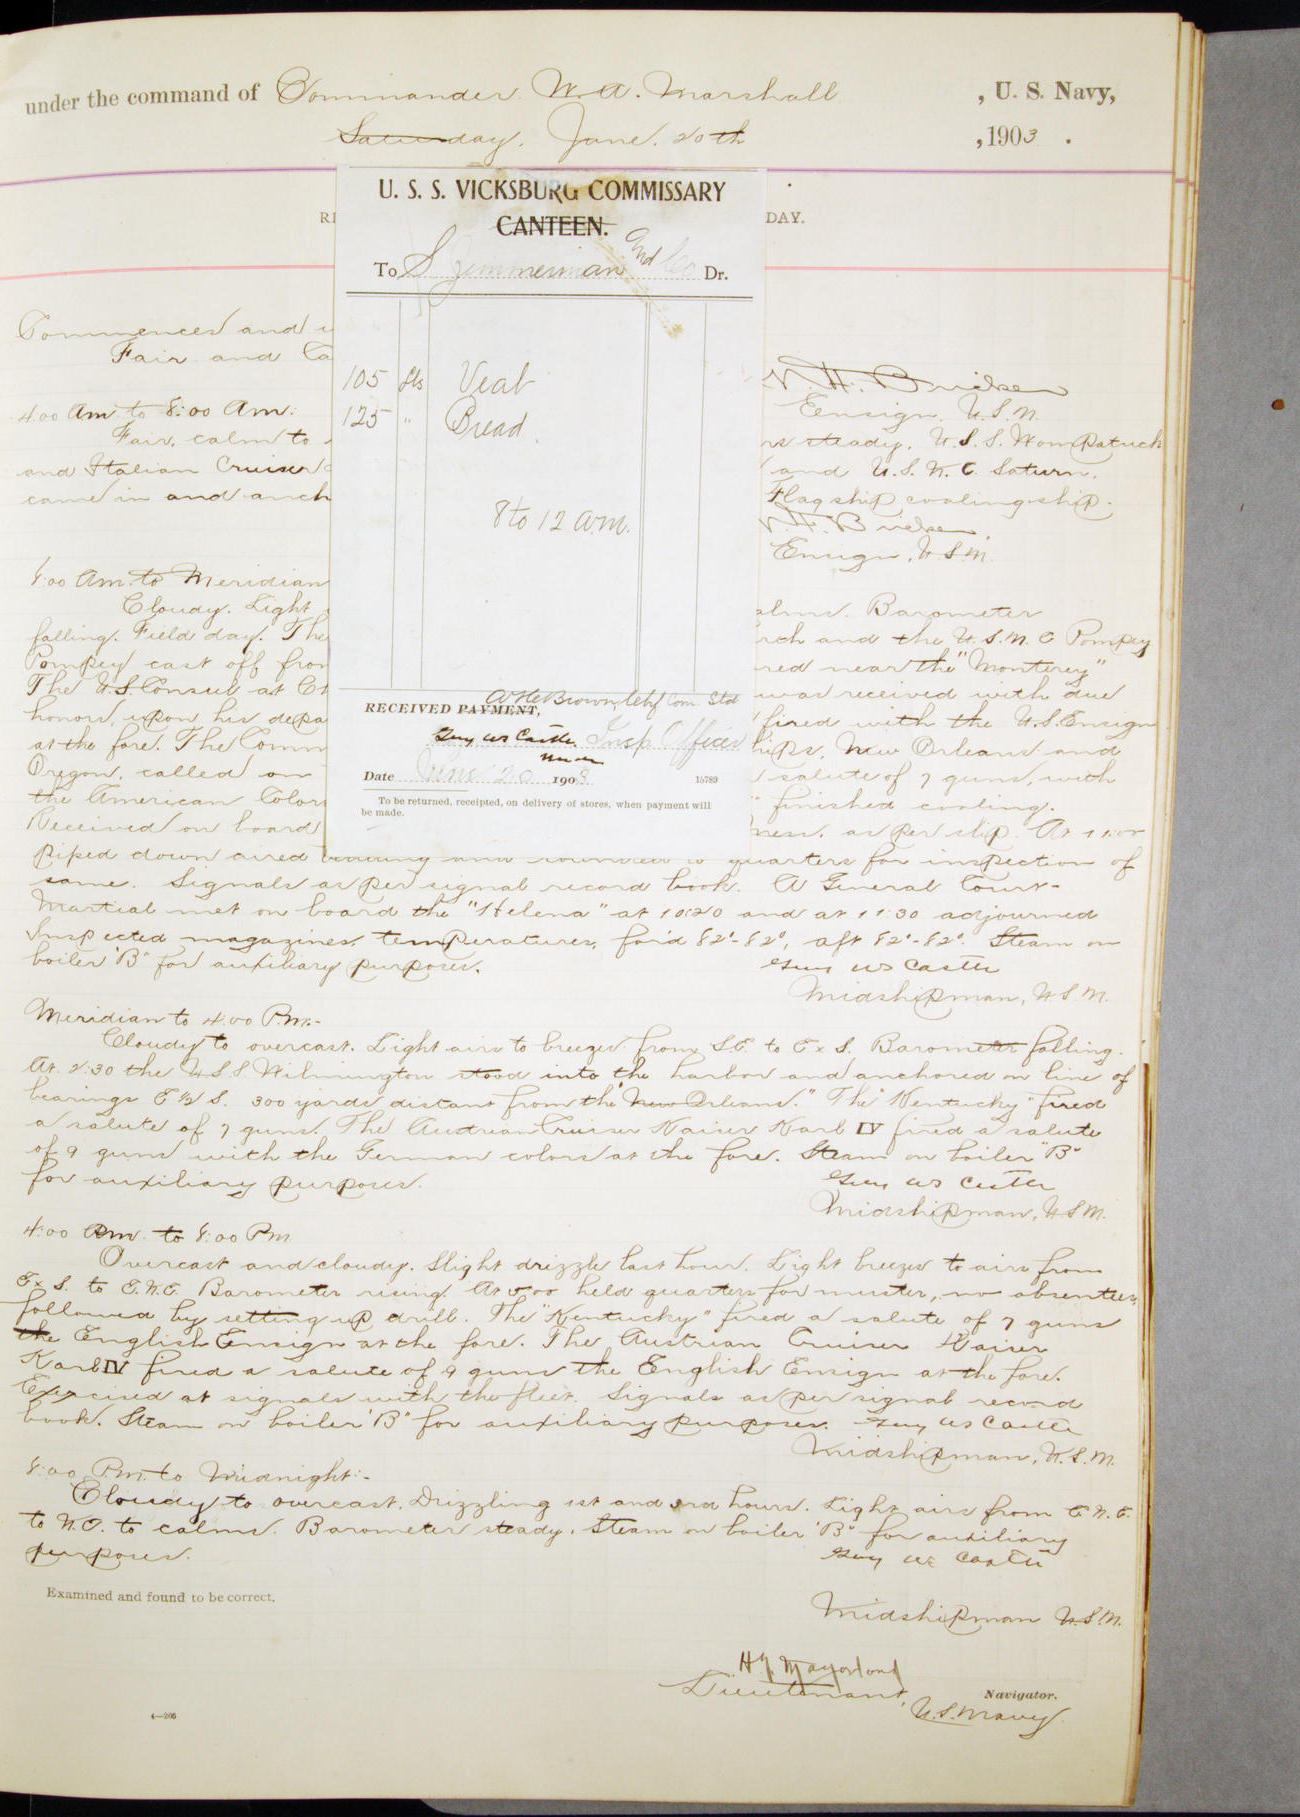 under the command of Commander W. A. Marshall , U. S. Navy,
Saturday, June. 20th , 1903 .
DAY.
U. S. S. VICKSBURG COMMISSARY
CANTEEN.
To S Zimmerman and Co Dr.
105 lbs Veal
125 " Bread
8 to 12 a.m.
RECEIVED PAYMENT,
Com. Std
Guy W S Castle Insp. Officer
Date June 20 1903. 15789
To be returned, receipted, on delivery of stores, when payment will
be made.
Commences and
Fair and
Ensign, U.S.N.
4:00 Am. to 8:00 Am:
Fair, calm to steady. U.S.S. Wompatuck
and Italian Cruiser and U.S.N.C. Saturn.
came in and anch Flagship, coalingship.
Ensign, U.S.N.
8:00 Am. to Meridian
Cloudy. Light alms. Barometer
falling. Field day. The and the U.S.N.C Pompey
Pompey cast off from red near the "Monterey"
The U.S. Consul at was received with due
honors, upon his depa fired with the U.S. Ensign
at the fore. The Comm ships, New Orleans and
Oregon, called on salute of 7 guns, with
the American Colors finished coaling.
Received on board as per slip. At 11:00
piped down aired bedding and sounded to quarters for inspection of
same. Signals as per signal record book. A General Court-
Martial met on board the "Helena" at 10:20 and at 11:30 adjourned
Inspected magazines, temperatures, for'd 82°-82°, aft 82°-82°. Steam on
boiler "B" for auxiliary purposes.
Guy W S Castle
Midshipman, U.S.N.
Meridian to 4:00 P.M:-
Cloudy to overcast. Light airs to breezes from S.E. to E x S. Barometer falling.
At 2:30 the U.S.S. Wilmington stood into the harbor and anchored on line of
bearings E ½ S. 300 yards distant from the "New Orleans." The "Kentucky" fired
a salute of 7 guns. The Austrian Cruiser Kaiser Karl IV fired a salute
of 9 guns with the German colors at the fore. Steam on boiler "B"
for auxiliary purposes.
Guy W S Castle
Midshipman, U.S.N.
4:00 Pm. to 8:00 Pm
Overcast and cloudy. Slight drizzle last hour. Light breezes to airs from
E x S. to E.N.E. Barometer rising. At 5:00 held quarters for muster, no absentees,
followed by setting up drill. The "Kentucky" fired a salute of 7 guns
the English Ensign at the fore. The Austrian Cruiser Kaiser
Karl IV fired a salute of 9 guns the English Ensign at the fore.
Exercised at signals with the fleet. Signals as per signal record
book. Steam on boiler "B" for auxiliary purposes. Guy W S Castle
Midshipman, U.S.N.
8:00 P.m. to Midnight:-
Cloudy to overcast. Drizzling 1st and 3rd hours. Light airs from E.N.E.
to N.E. to calms. Barometer steady. Steam on boiler "B" for auxiliary
purposes.
Guy W S Castle
Examined and found to be correct.
Midshipman U.S.N.
Lieutenant, U.S. Navy
Navigator.
4—206